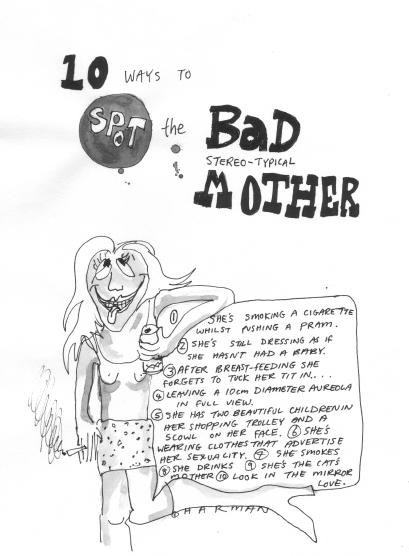 10 WAYS TO
SPOT the BaD
STEREO-TYPICAL
MOTHER
① SHE'S SMOKING A CIGARETTE
WHILST PUSHING A PRAM.
② SHE'S STILL DRESSING AS IF
SHE HASN'T HAD A BABY.
③ AFTER BREAST-FEEDING SHE
FORGETS TO TUCK HER TIT IN....
④ LEAVING A 10CM DIAMETER AUREOLA
IN FULL VIEW.
⑤ SHE HAS TWO BEAUTIFUL CHILDREN IN
HER SHOPPING TROLLEY AND A
SCOWL ON HER FACE. ⑥ SHE'S
WEARING CLOTHES THAT ADVERTISE
HER SEXUALITY. ⑦ SHE SMOKES
⑧ SHE DRINKS ⑨ SHE'S THE CAT'S
MOTHER ⑩ LOOK IN THE MIRROR
LOVE.
HARMAN